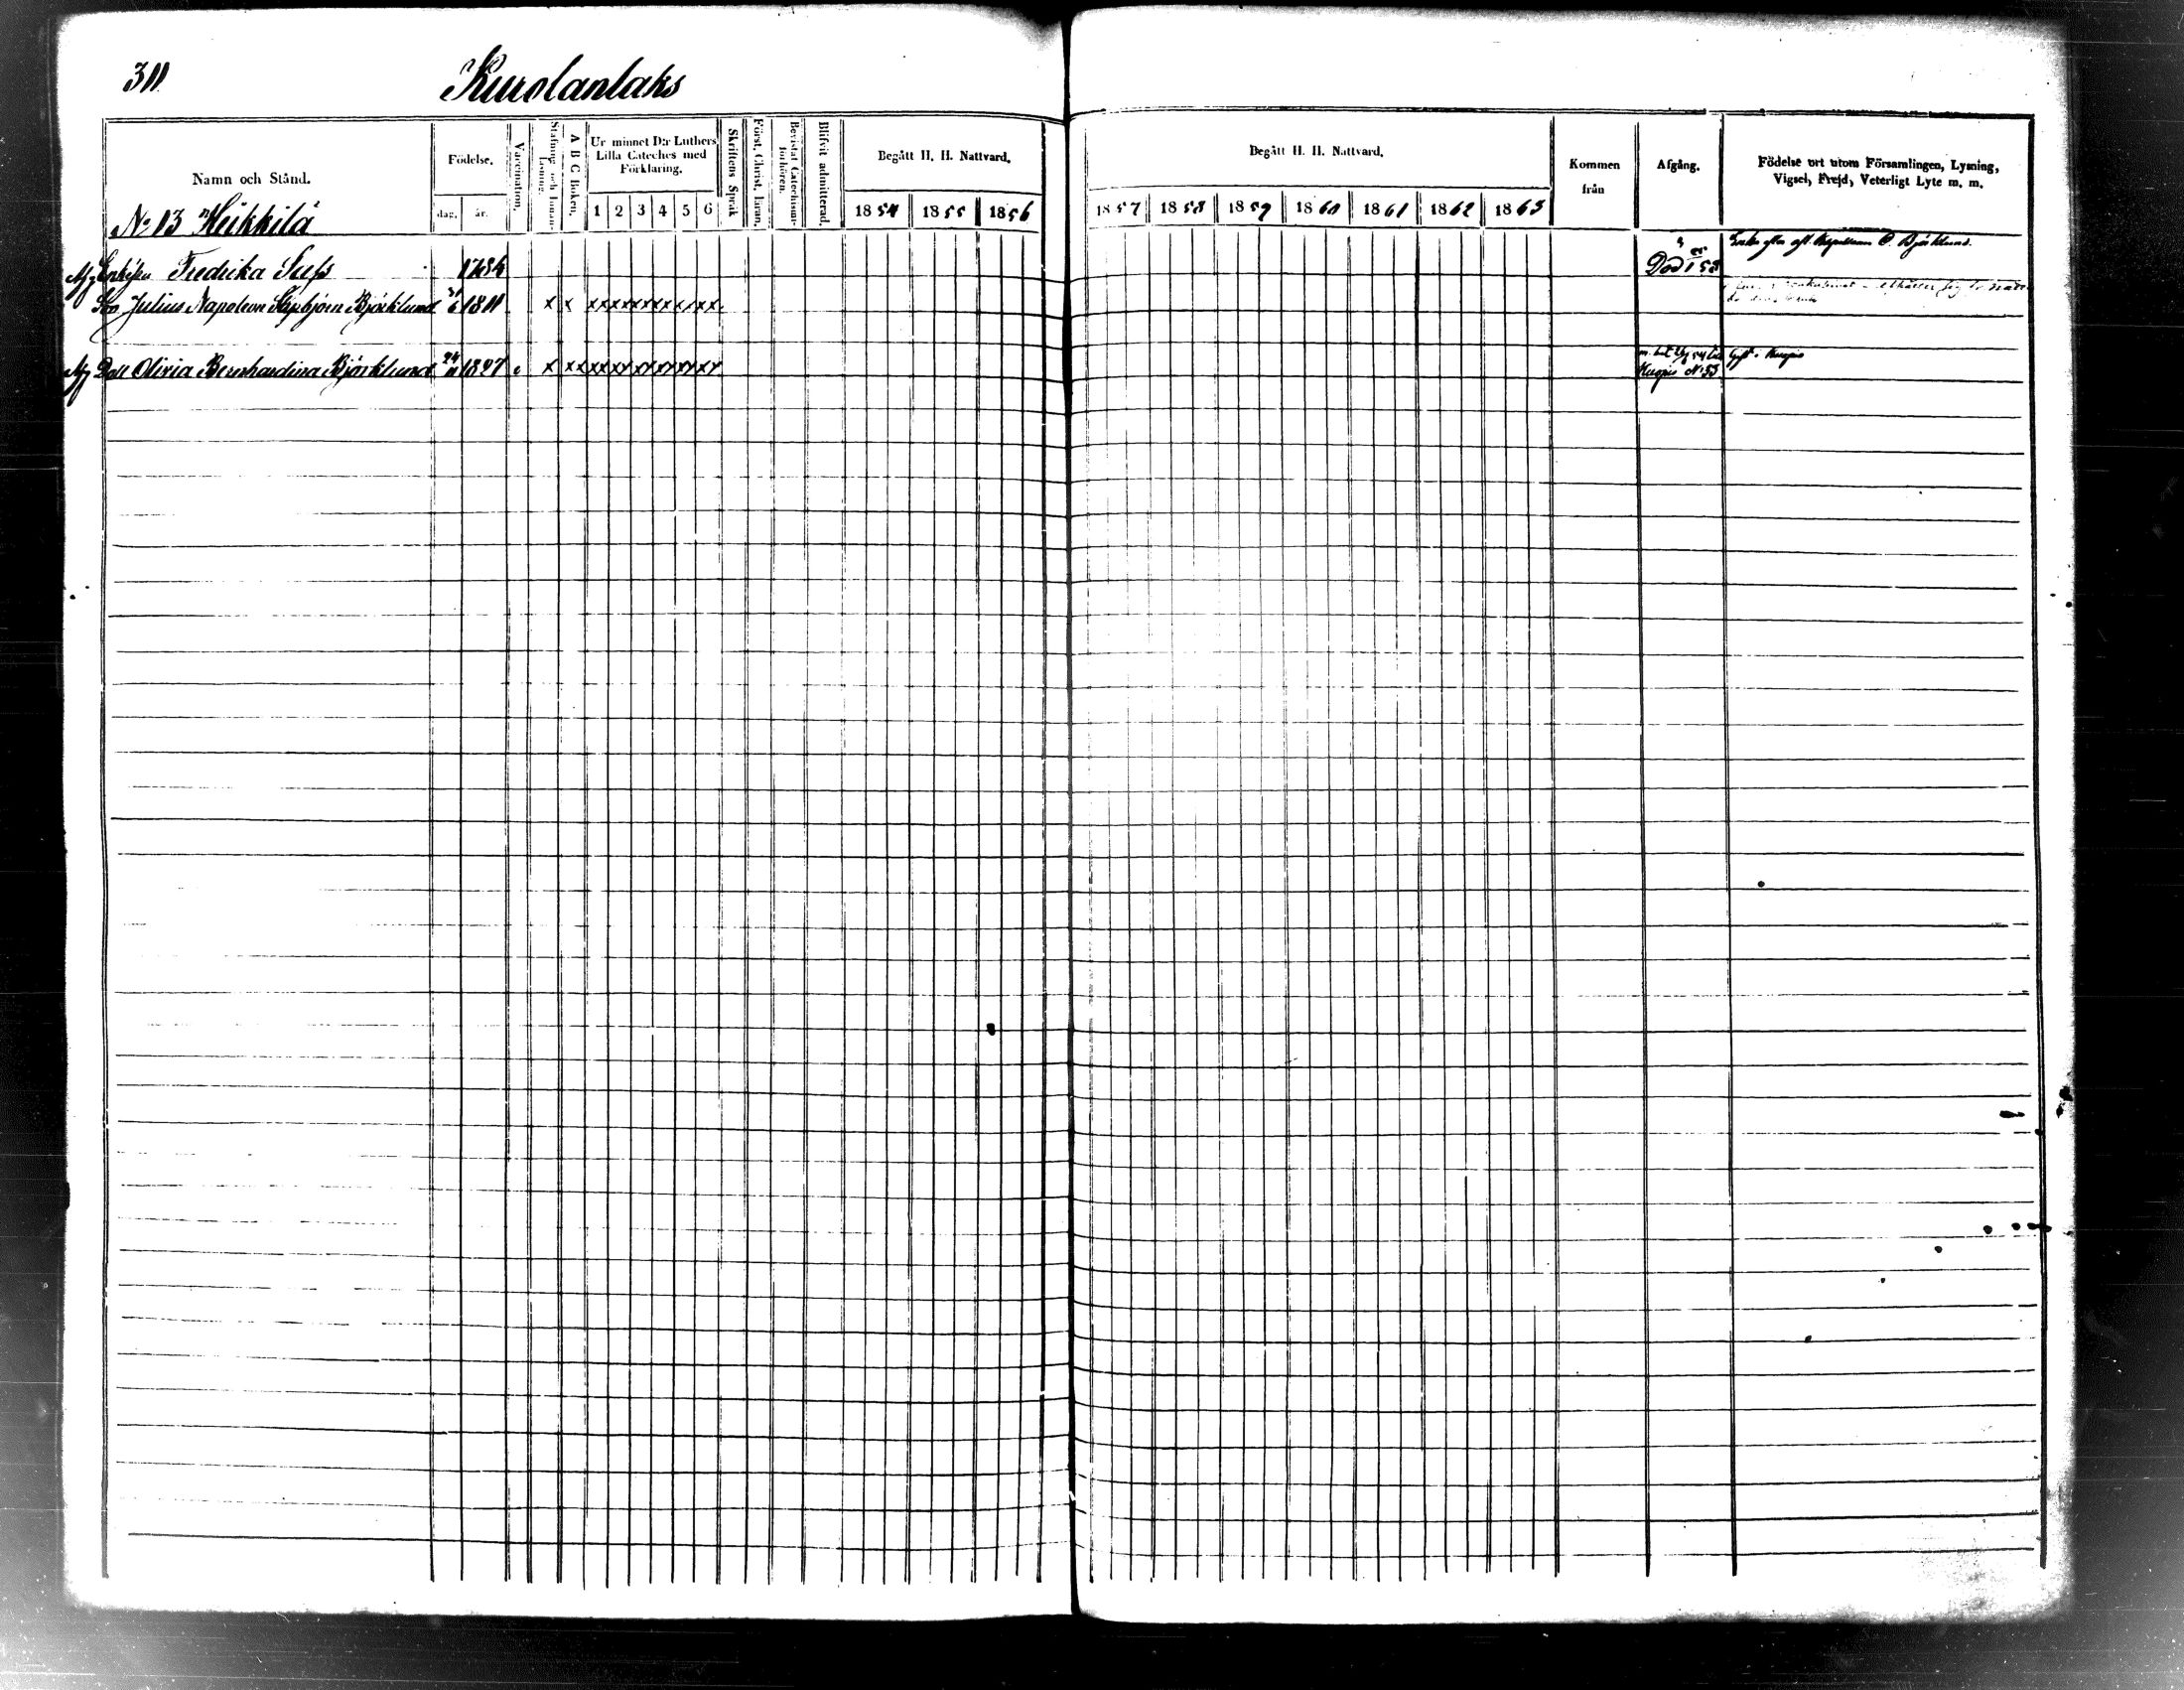 311 Kurolanlaks
Namn och Stånd.
Födelse.
dag. år.
Vaccination.
Stafning och Innan-Läsning
A B C Boken.
Ur minnet D:r Luthers
Lilla Cateches med
Förklaring.
1 2 3 4 5 6
Skriftens Språk
Först. Christ. läran.
Bevistat Catechismi-förhören.
Blifvit admitterad.
Begått H. H. Nattvard.
1854 1855 1856
Begått H. H. Nattvard.
1857 1858 1859 1860 1861 1862 1863
Kommen
från
Afgång.
Födelse ort utom Församlingen, Lysning,
Vigsel, Frejd, Veterligt Lyte m. m.
No 13 Heikkilä
Fredrika 58 Enka efter O. Björklund.
Död
Julius Napoleon Björklund 1811 x x xxxxxxxxxxxx
Olivia Bernhardina Björklund 24 1827 x xxxxxxxxxxxxxx 54 Gift i Kuopio
Kuopio No 53